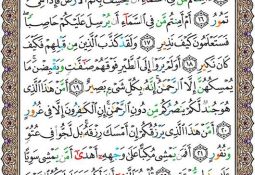 تَمُورُ ١٦ أَمْ أَمِنتُم مَّن فِي ٱلسَّمَآءِ أَن يُرْسِلَ عَلَيْكُمْ حَاصِبًا
فَسَتَعْلَمُونَ كَيْفَ نَذِيرِ ١٧ وَلَقَدْ كَذَّبَ ٱلَّذِينَ مِن قَبْلِهِمْ فَكَيْفَ
كَانَ نَكِيرِ ١٨ أَوَلَمْ يَرَوْا۟ إِلَى ٱلطَّيْرِ فَوْقَهُمْ صَٰٓفَّٰتٍ وَيَقْبِضْنَ مَا
يُمْسِكُهُنَّ إِلَّا ٱلرَّحْمَٰنُ إِنَّهُۥ بِكُلِّ شَىْءٍۭ بَصِيرٌ ١٩ أَمَّنْ هَٰذَا ٱلَّذِى
هُوَ جُندٌ لَّكُمْ يَنصُرُكُم مِّن دُونِ ٱلرَّحْمَٰنِ إِنِ ٱلْكَٰفِرُونَ إِلَّا فِى غُرُورٍ
٢٠ أَمَّنْ هَٰذَا ٱلَّذِى يَرْزُقُكُمْ إِنْ أَمْسَكَ رِزْقَهُۥ بَل لَّجُّوا۟ فِى عُتُوٍّ
وَنُفُورٍ ٢١ أَفَمَن يَمْشِى مُكِبًّا عَلَىٰ وَجْهِهِۦٓ أَهْدَىٰٓ أَمَّن يَمْشِى سَوِيًّا